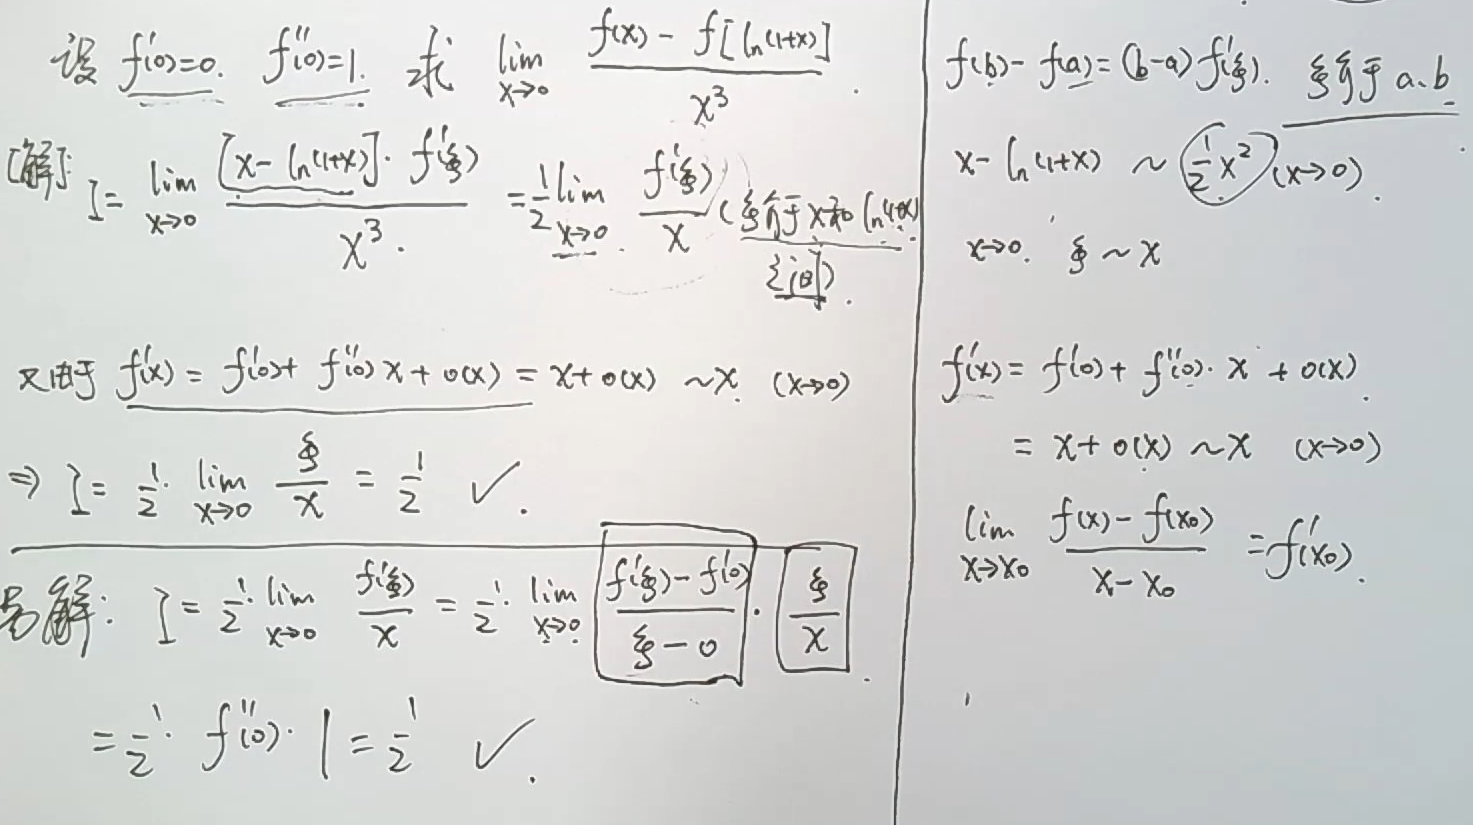 设 f'(0)=0. f''(0)=1. 求 lim x→0 (f(x) - f[ln(1+x)]) / x³.
[解]: I = lim x→0 ([x - ln(1+x)]·f'(ξ)) / x³. = 1/2 lim x→0. f'(ξ) / x (ξ介于x和ln(1+x)
之间).
又由于 f'(x) = f'(0) + f''(0)x + o(x) = x + o(x) ~ x. (x→0)
⇒ I = 1/2· lim x→0 ξ/x = 1/2 ✓.
另解: I = 1/2· lim x→0 f'(ξ)/x = 1/2· lim x→0 (f'(ξ) - f'(0))/(ξ - 0) · ξ/x.
= 1/2· f''(0)· 1 = 1/2 ✓.
f(b) - f(a) = (b-a) f'(ξ). ξ介于 a、b.
x - ln(1+x) ~ 1/2 x² (x→0).
x→0. ξ ~ x
f'(x) = f'(0) + f''(0)· x + o(x).
= x + o(x) ~ x (x→0)
lim x→x₀ (f(x) - f(x₀))/(x - x₀) = f'(x₀).